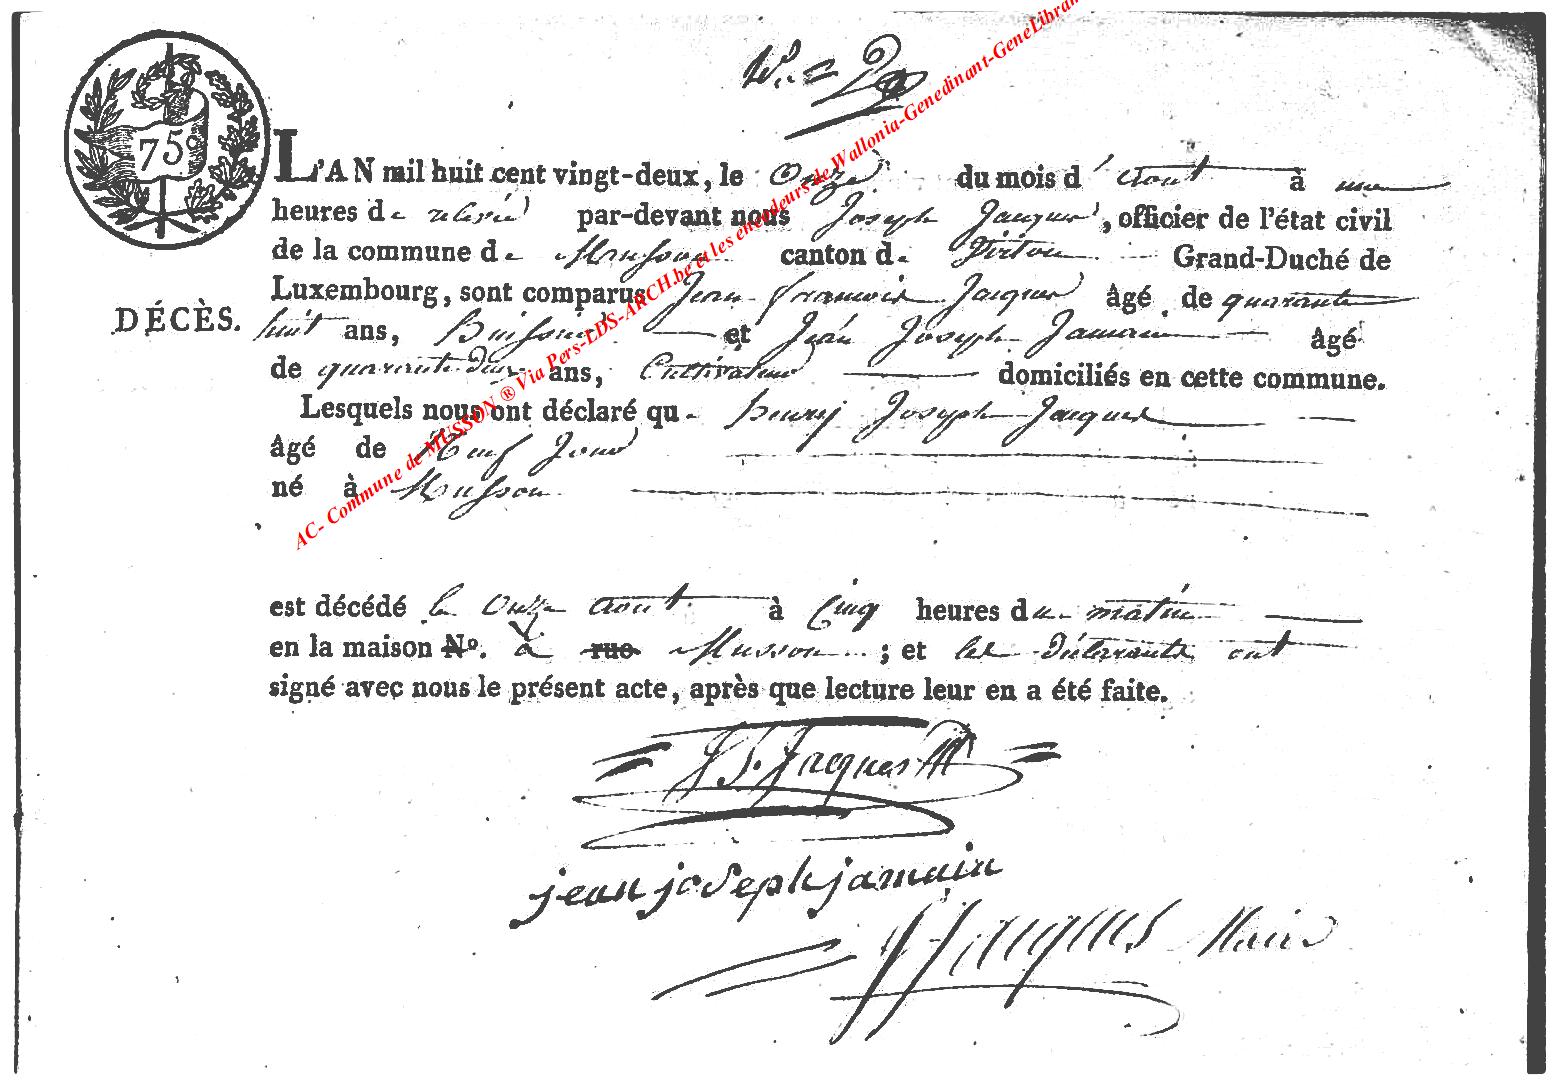 75c
L'AN mil huit cent vingt-deux, le onze du mois d'aout à une
heures de relevée par-devant nous Joseph Jacques, officier de l'état civil
de la commune de Musson canton de Virton Grand-Duché de
Luxembourg, sont comparus Jean francois Jacques âgé de quarante
DÉCÈS.
huit ans, et Jean Joseph Jamain âgé
de quarante deux ans, Cultivateur domiciliés en cette commune.
Lesquels nous ont déclaré que henry Joseph Jacques
âgé de Neuf Jour
né à Musson
est décédé le onze aout à Cinq heures du matin
en la maison No. à rue Musson ; et les Déclarants ont
signé avec nous le présent acte, après que lecture leur en a été faite.
Jacques
jean joseph jamain
Jacques Maire
AC- Commune de MUSSON ® Via Pers-LDS-ARCH.be et les encodeurs de Wallonia-Genedinant-GeneLibran